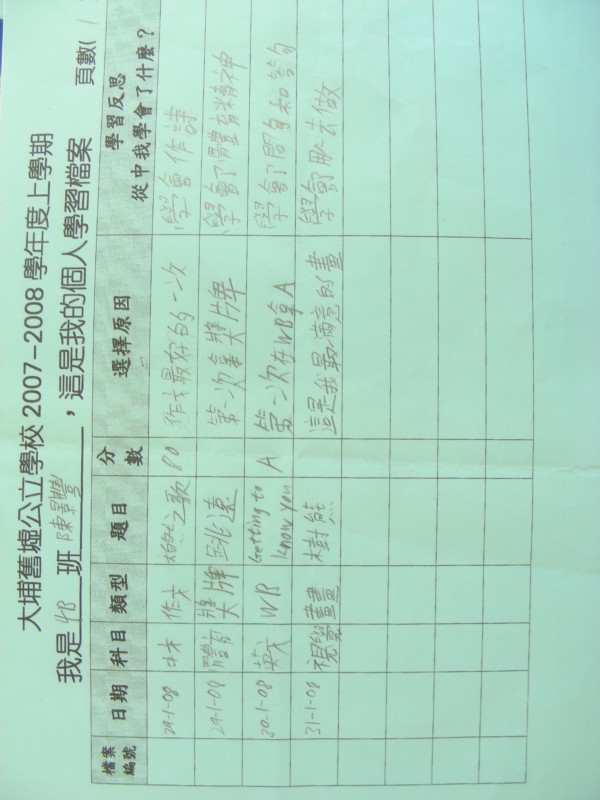 大埔舊墟公立學校 2007-2008 學年度上學期
我是 4B 班 陳 ，這是我的個人學習檔案 頁數( 1
檔案編號 日期 科目 類型 題目 分數 選擇原因 學習反思 從中我學會了什麼？
29-1-08 中文 作文 之歌 80 作文最好的一次 學會作詩
29-1-08 體育 獎牌 跳遠 第一次拿獎牌 學會了體育精神
30-1-08 英文 WB Getting to know you A 第一次在WB拿A 學會了問句和答句
31-1-08 視覺 畫畫 樹熊 這是我最滿意的畫 學會去做